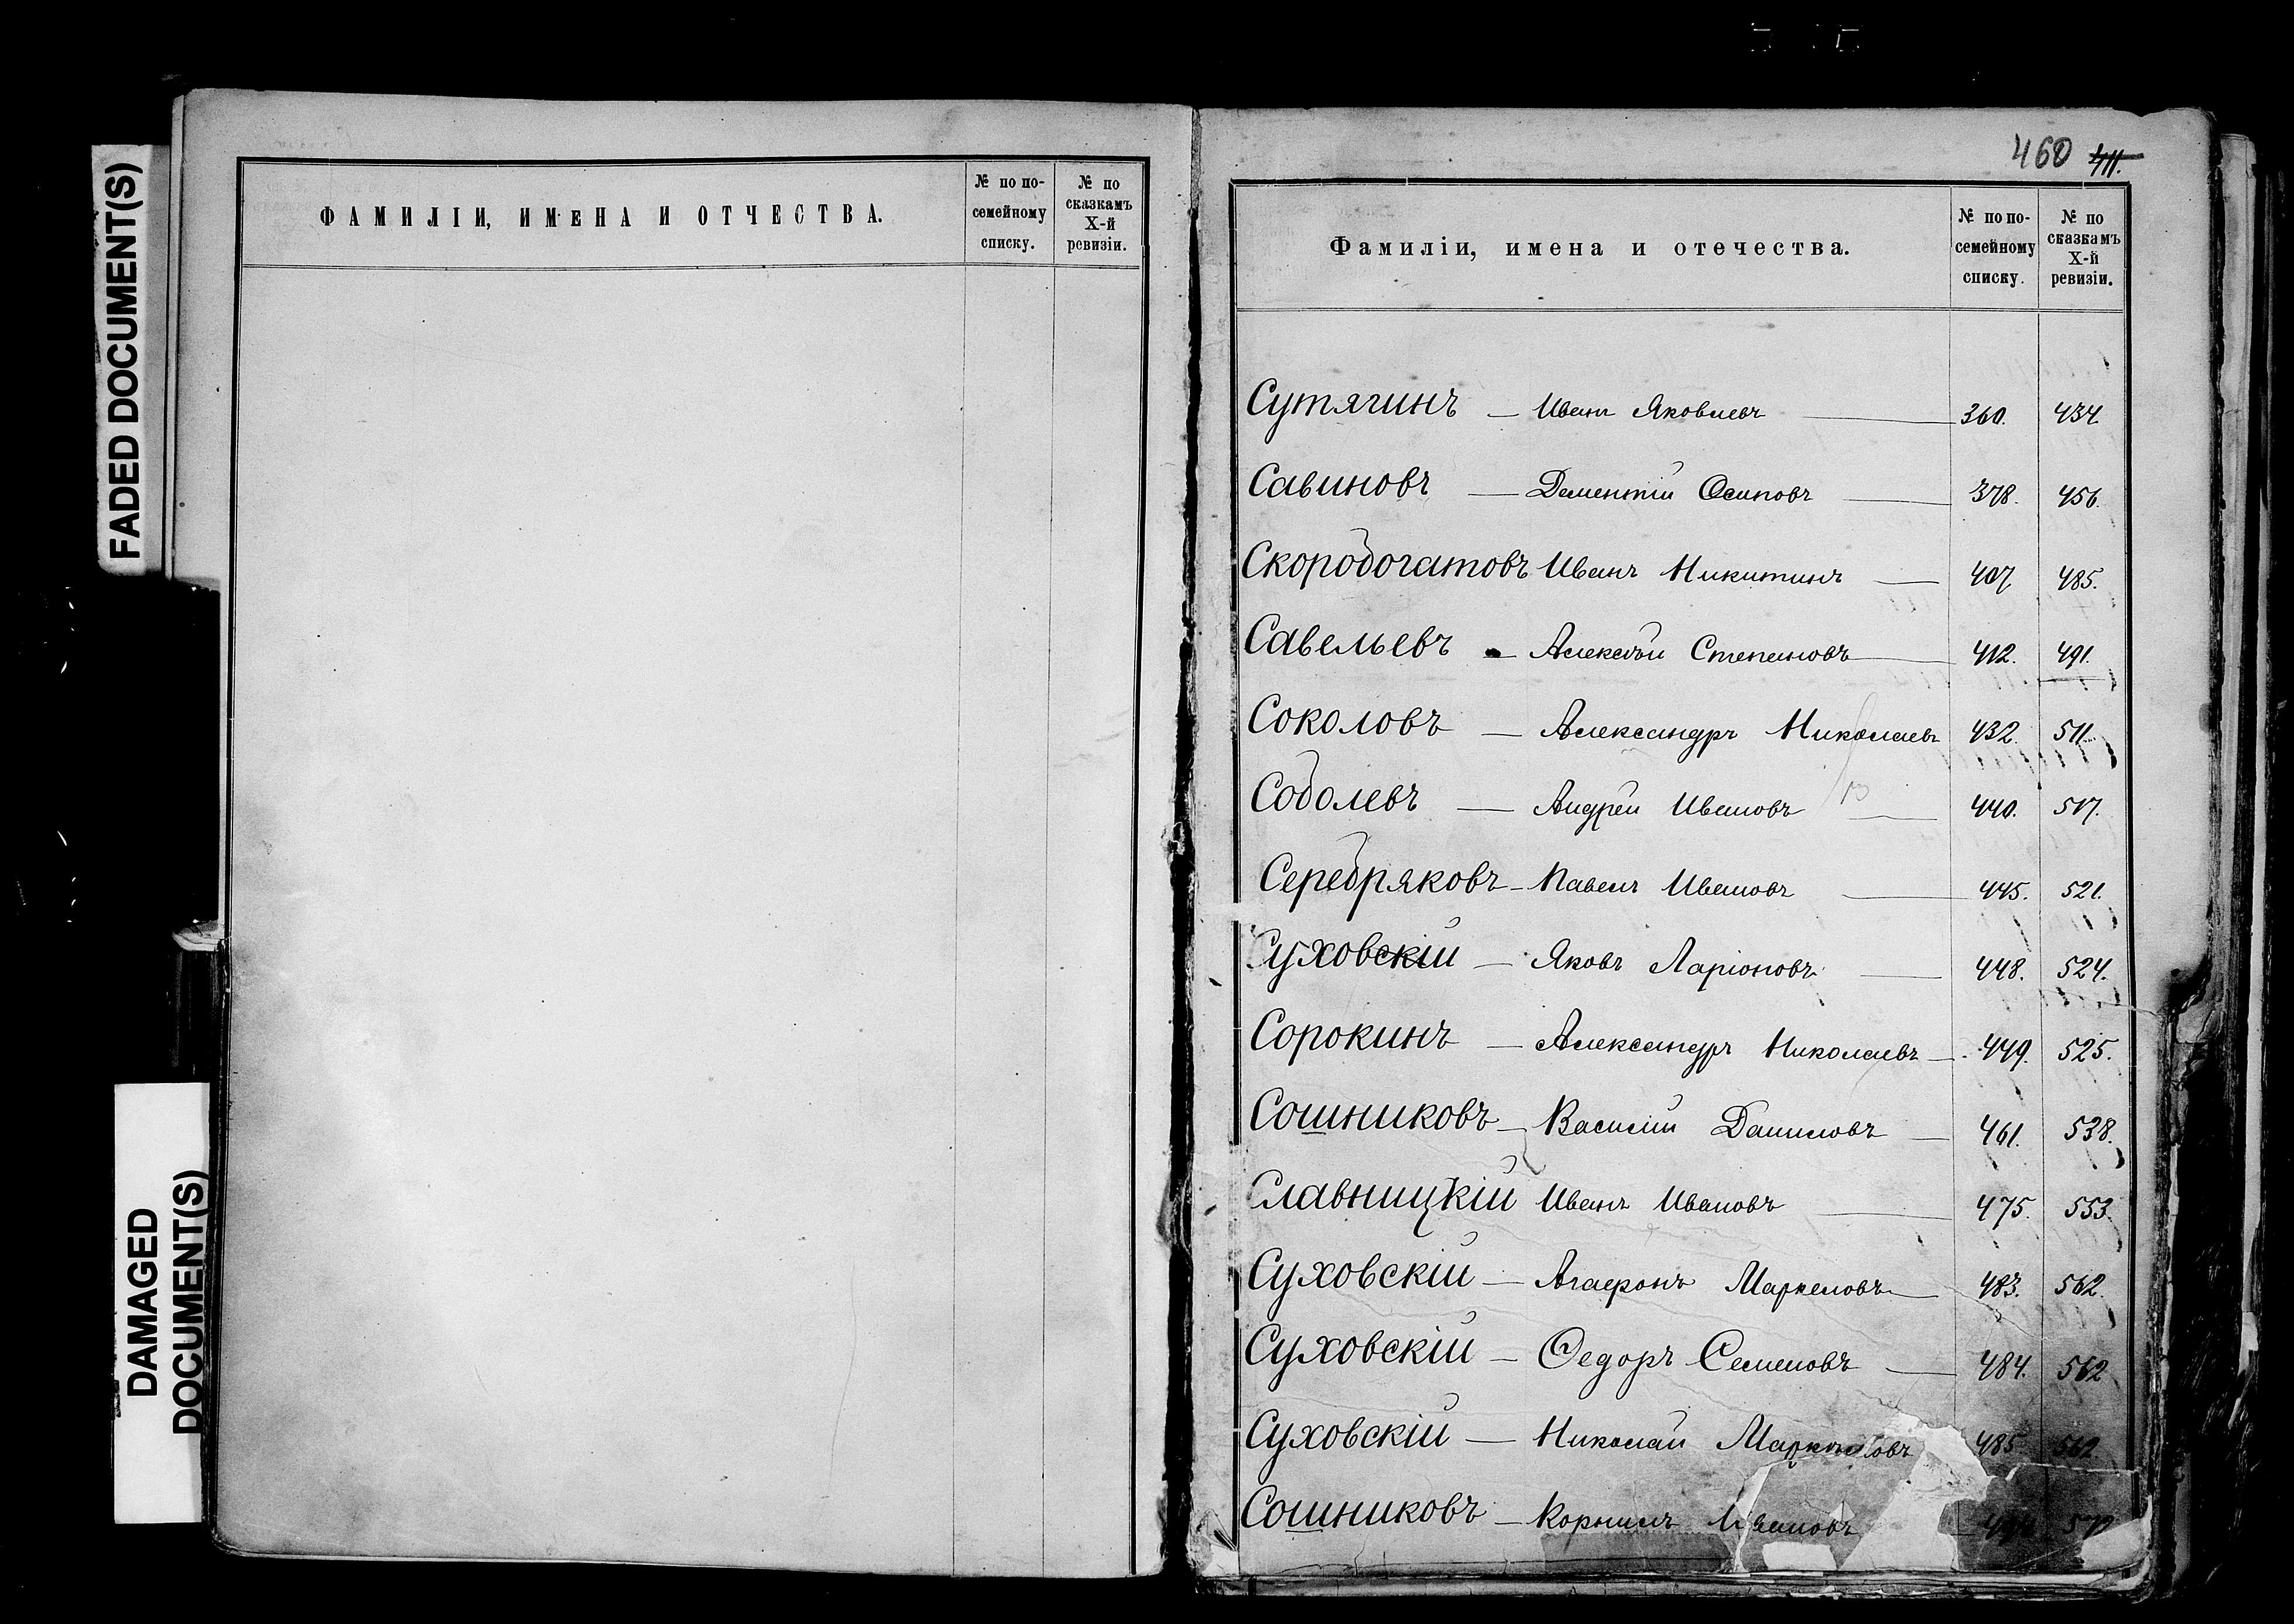 FADED DOCUMENT(S)
DAMAGED
DOCUMENT(S)
ФАМИЛІИ, ИМЕНА И ОТЧЕСТВА.
№ по по-
семейному
списку.
№ по
сказкамъ
X-й
ревизіи.
460 411.
Фамиліи, имена и отечества.
№ по по-
семейному
списку.
№ по
сказкамъ
X-й
ревизіи.
Сутягинъ — Иванъ Яковлевъ — 360. 434.
Савиновъ — Дементій Осиповъ — 378. 456.
Скоробогатовъ Иванъ Никитинъ — 407. 485.
Савельевъ — Алексѣй Степановъ — 412. 491.
Соколовъ — Александръ Николаевъ 432. 511.
Соболевъ — Андрей Ивановъ — 440. 517.
Серебряковъ — Павелъ Ивановъ — 445. 521.
Суховскій — Яковъ Ларіоновъ — 448. 524.
Сорокинъ — Александръ Николаевъ — 449. 525.
Сошниковъ — Василій Даниловъ — 461. 538.
Славницкій Иванъ Ивановъ — 475. 553.
Суховскій — Агафонъ Маркеловъ — 483. 562.
Суховскій — Ѳедоръ Семеновъ — 484. 562
Суховскій — Николай Маркеловъ 485. 562
Сошниковъ — Корнилъ Ивановъ —